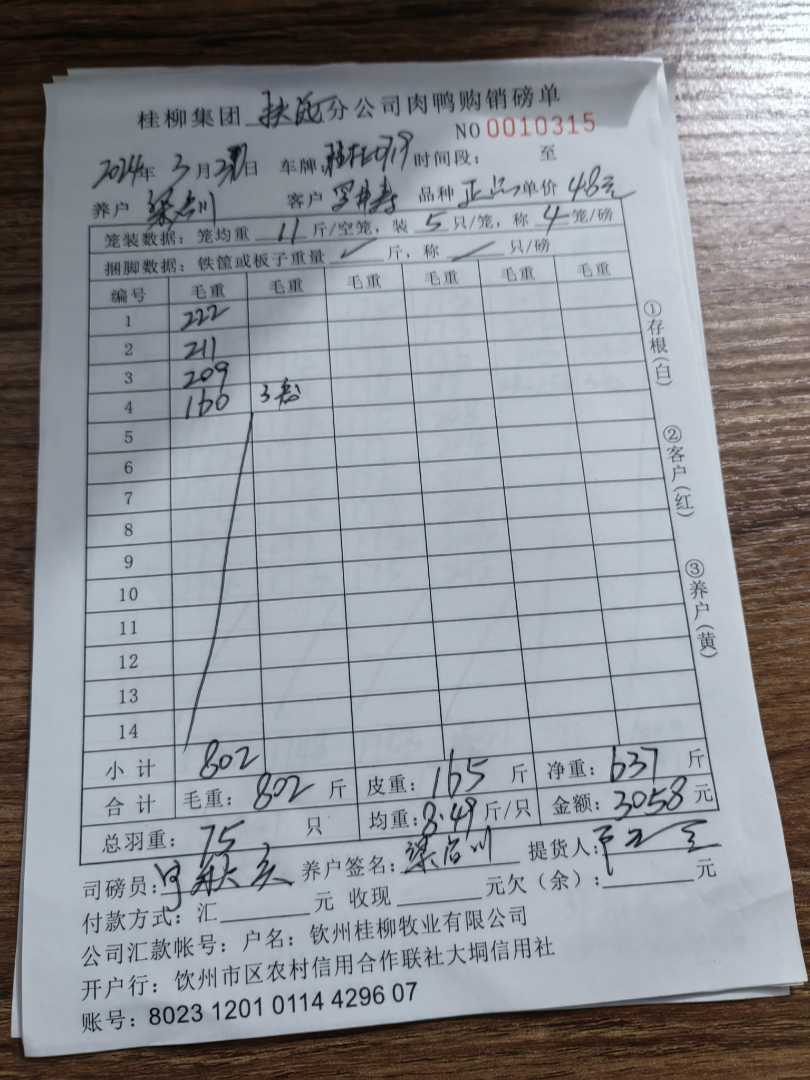 桂柳集团 扶绥 分公司肉鸭购销磅单
NO 0010315
2024年 3月 日 车牌: 时间段: 至
养户 梁岂川 客户 品种 正品 单价 4.8元
笼装数据: 笼均重 11 斤/空笼, 装 5 只/笼, 称 4 笼/磅
捆脚数据: 铁筐或板子重量 / 斤, 称 / 只/磅
编号 毛重 毛重 毛重 毛重 毛重 毛重
1 222
2 211
3 209
4 160 3
5
6
7
8
9
10
11
12
13
14
小计 802
合计 毛重: 802 斤 皮重: 165 斤 净重: 637 斤
总羽重: 75 只 均重: 8.49 斤/只 金额: 3058 元
司磅员: 养户签名: 提货人:
付款方式: 汇 元 收现 元欠(余): 元
公司汇款帐号: 户名: 钦州桂柳牧业有限公司
开户行: 钦州市区农村信用合作联社大垌信用社
账号: 8023 1201 0114 4296 07
①存根(白)
②客户(红)
③养户(黄)